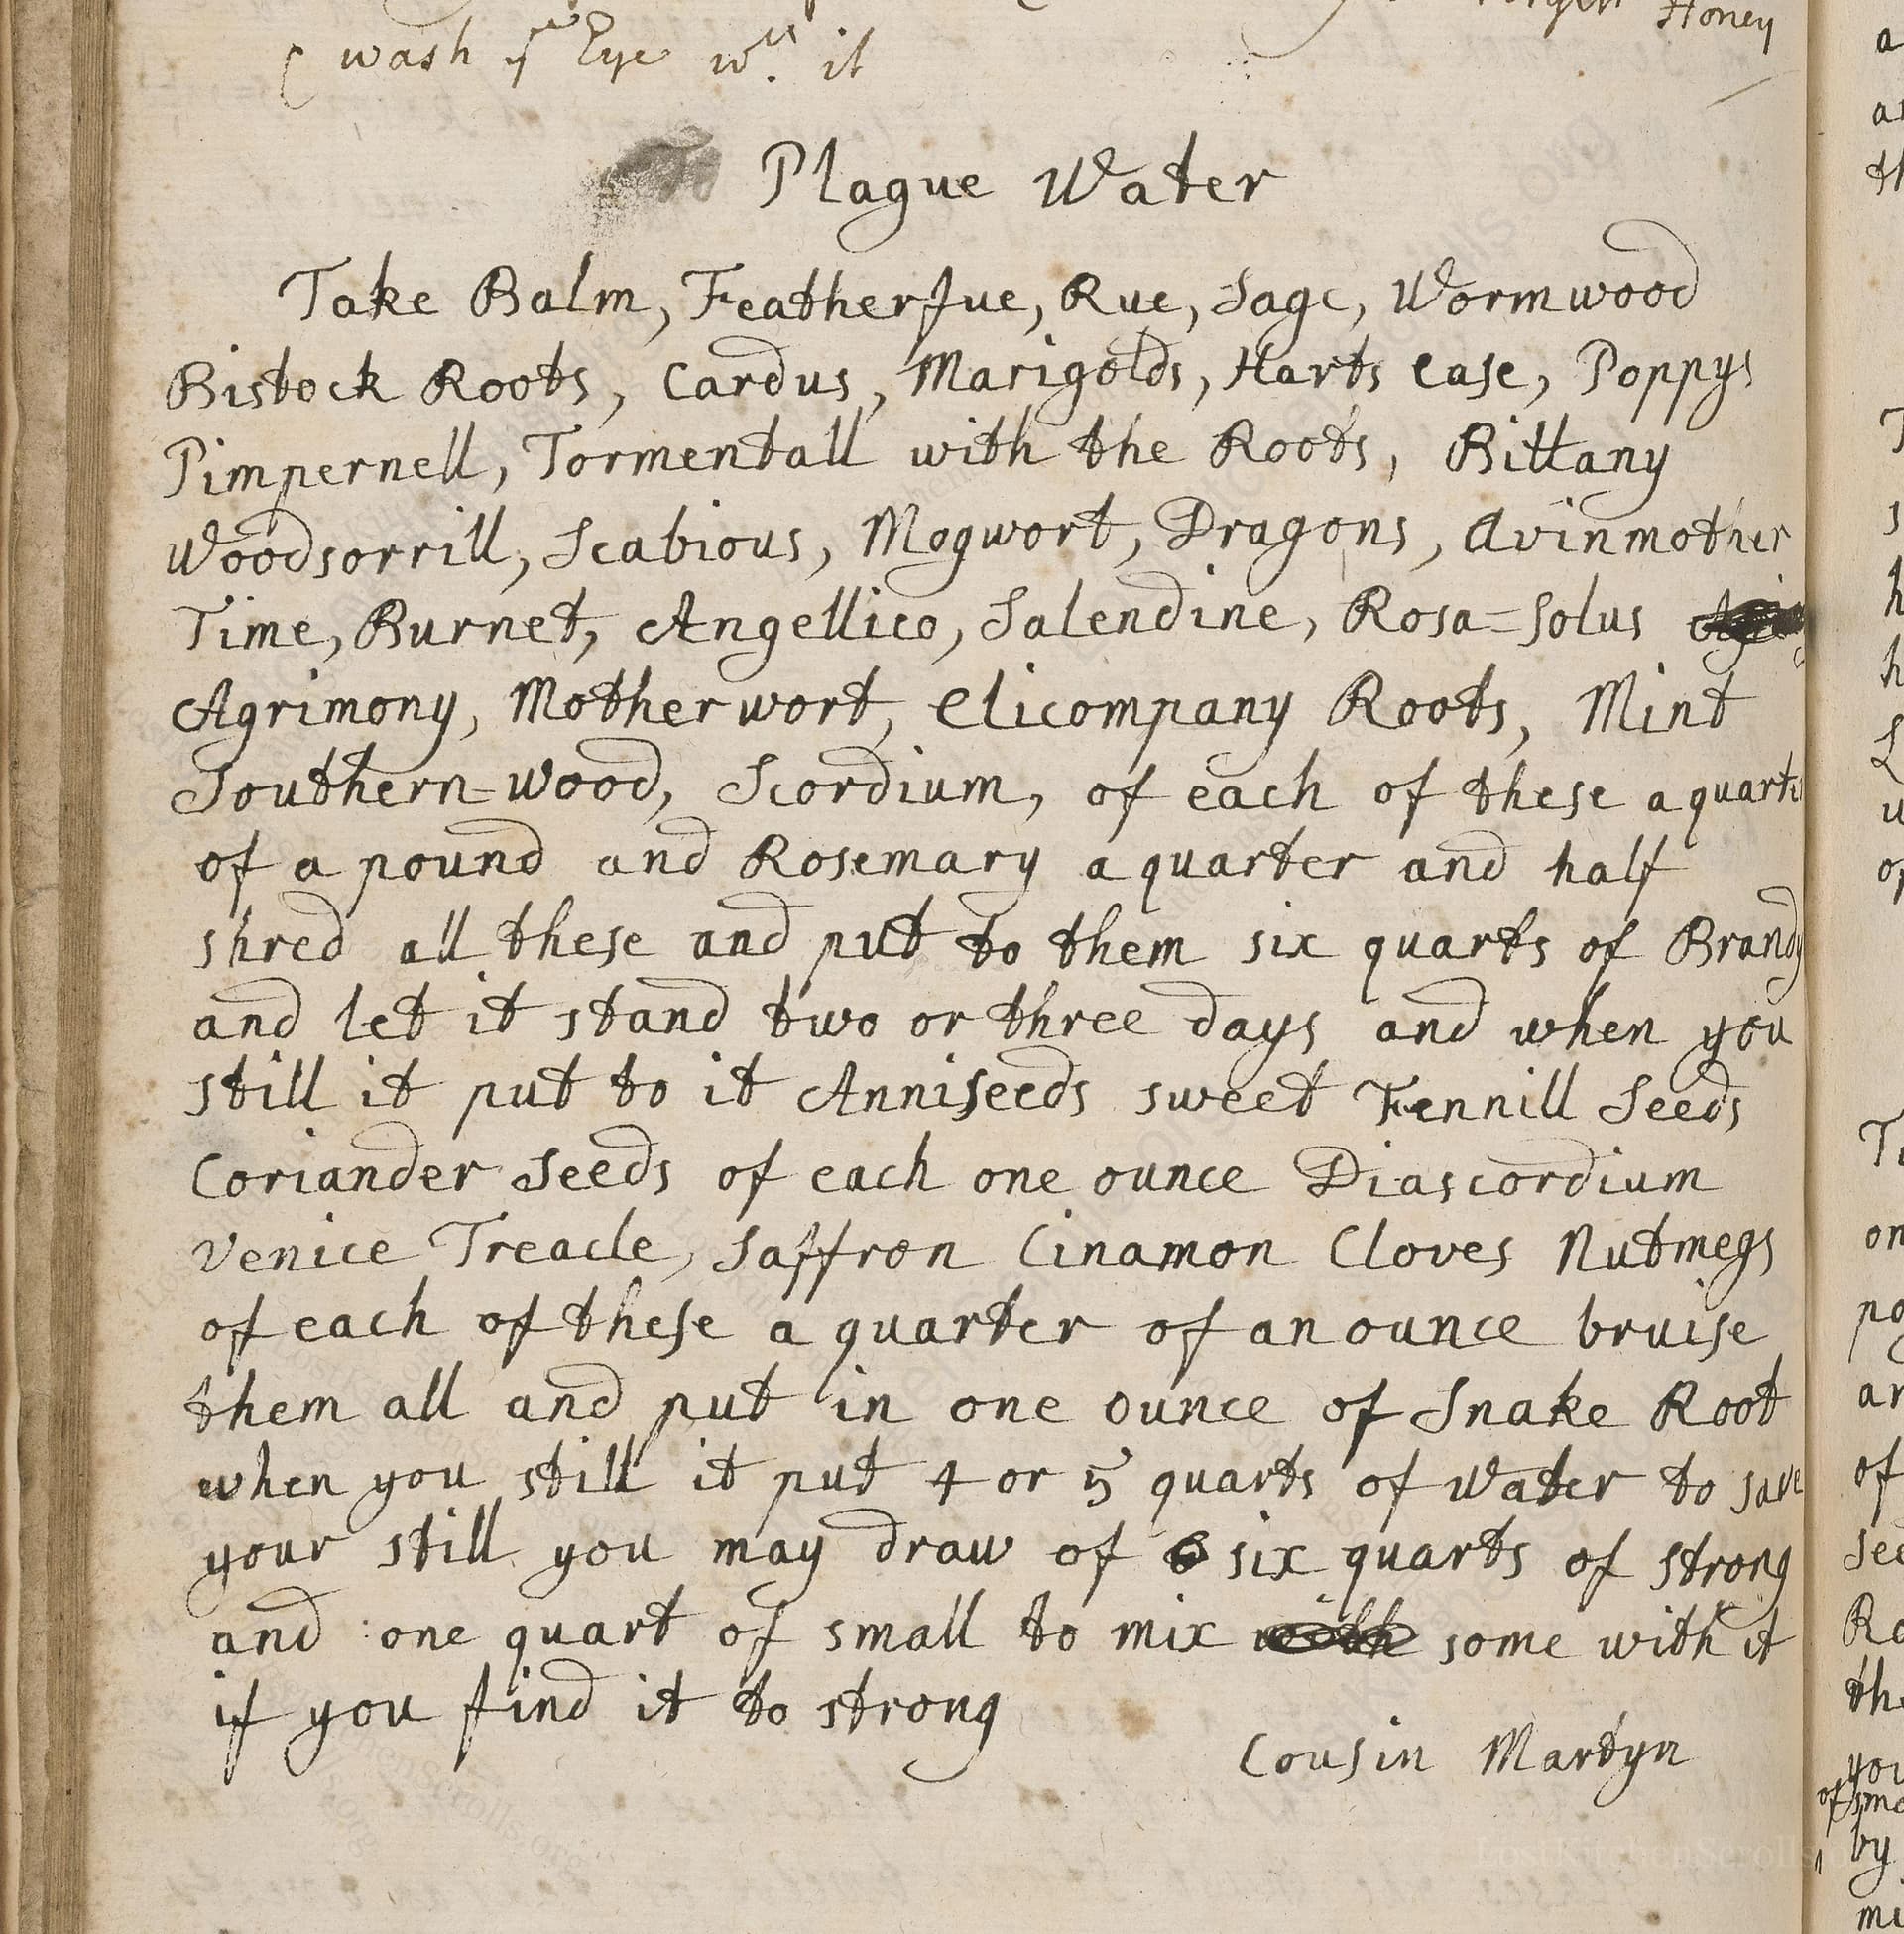 Honey
wash yᵉ Eye wᵗʰ it
Plague Water
Take Balm, Featherfue, Rue, Sage, Wormwood
Bistock Roots, Cardus, Marigolds, Harts ease, Poppys
Pimpernell, Tormentall with the Roots, Bittany
Woodsorrill, Scabious, Mogwort, Dragons, Avinmother
Time, Burnet, Angellico, Salendine, Rosa=Solus
Agrimony, Motherwort, Elicompany Roots, Mint
Southern=wood, Scordium, of each of these a quarter
of a pound and Rosemary a quarter and half
shred all these and put to them six quarts of Brandy
and let it stand two or three days and when you
still it put to it Anniseeds sweet Fennill Seeds
Coriander Seeds of each one ounce Diascordium
Venice Treacle, Saffron Cinamon Cloves Nutmegs
of each of these a quarter of an ounce bruise
them all and put in one ounce of Snake Root
when you still it put 4 or 5 quarts of water to save
your still you may draw of six quarts of strong
and one quart of small to mix some with it
if you find it to strong
Cousin Martyn